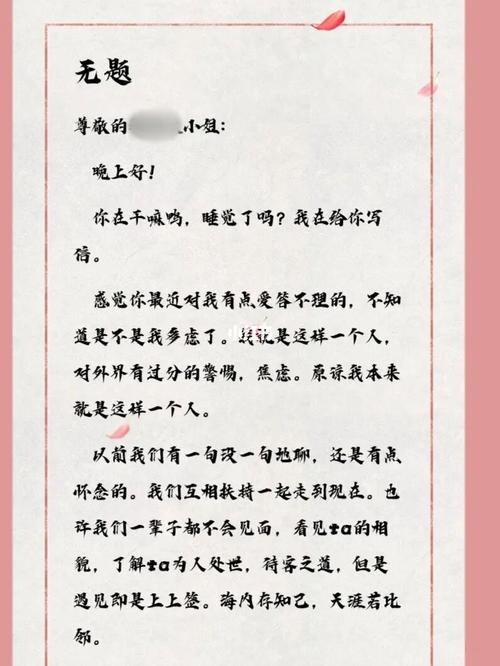 无题
尊敬的 小姐：
晚上好！
你在干嘛呜，睡觉了吗？我在给你写
信。
感觉你最近对我有点爱答不理的，不知
道是不是我多虑了。我就是这样一个人，
对外界有过分的警惕，焦虑。原谅我本来
就是这样一个人。
以前我们有一句没一句地聊，还是有点
怀念的。我们互相扶持一起走到现在。也
许我们一辈子都不会见面，看见ta的相
貌，了解ta为人处世，待客之道，但是
遇见即是上上签。海内存知己，天涯若比
邻。